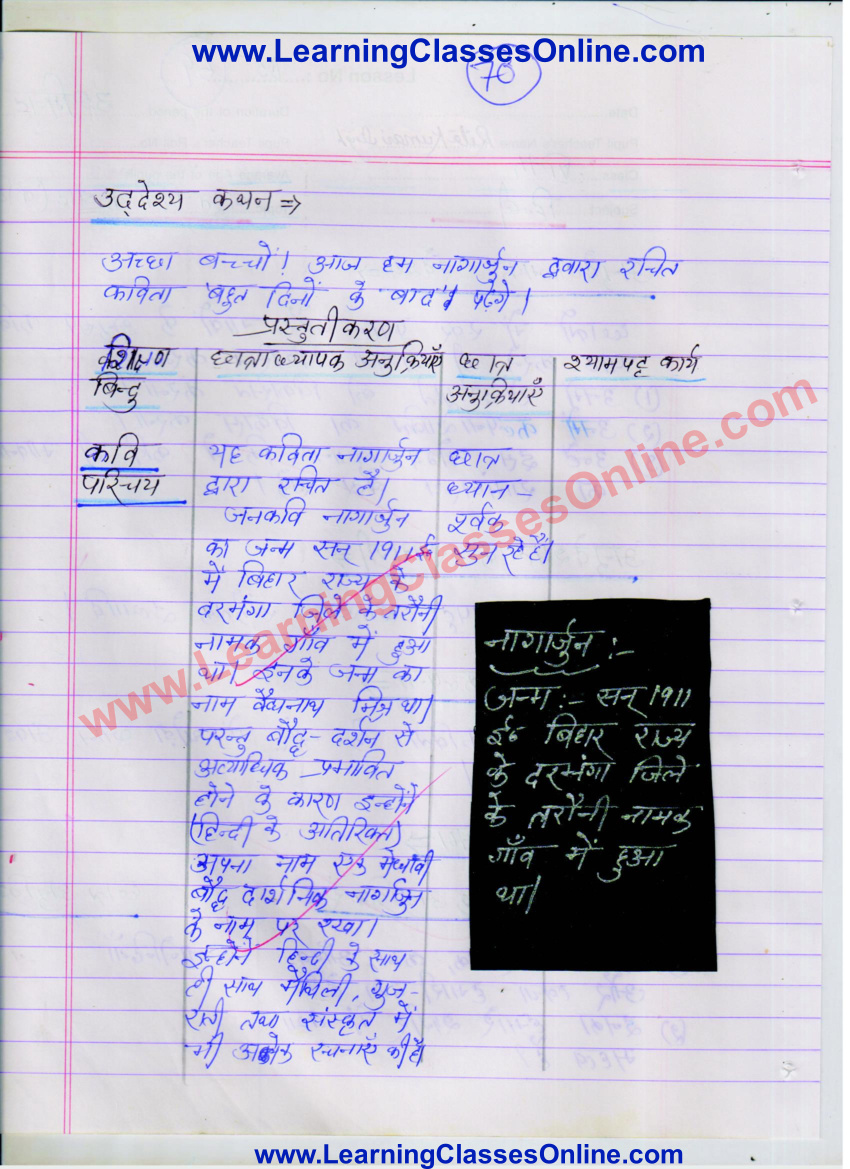 www.LearningClassesOnline.com
70
उद्देश्य कथन ⇒
अच्छा बच्चों! आज हम नागार्जुन द्वारा रचित
कविता 'बहुत दिनों के बाद' पढ़ेंगे।
प्रस्तुतीकरण
शिक्षण बिन्दु
छात्राध्यापक अनुक्रियाएँ
छात्र अनुक्रियाएँ
श्यामपट्ट कार्य
कवि
परिचय
यह कविता नागार्जुन
द्वारा रचित है।
जनकवि नागार्जुन
का जन्म सन् 1911 ई०
में बिहार राज्य के
दरभंगा जिले के तरौनी
नामक गाँव में हुआ
था। इनके जन्म का
नाम वैद्यनाथ मिश्र था।
परन्तु बौद्ध-दर्शन से
अत्याधिक प्रभावित
होने के कारण इन्होंने
(हिन्दी के अतिरिक्त)
अपना नाम एक मेधावी
बौद्ध दार्शनिक नागार्जुन
के नाम पर रखा।
इन्होंने हिन्दी के साथ
ही साथ मैथिली, गुज-
राती तथा संस्कृत में
भी अनेक रचनाएँ की हैं।
छात्र
ध्यान-
पूर्वक
सुन रहे हैं।
नागार्जुन :-
जन्म :- सन् 1911
ई० बिहार राज्य
के दरभंगा जिले
के तरौनी नामक
गाँव में हुआ
था।
www.LearningClassesOnline.com
www.LearningClassesOnline.com